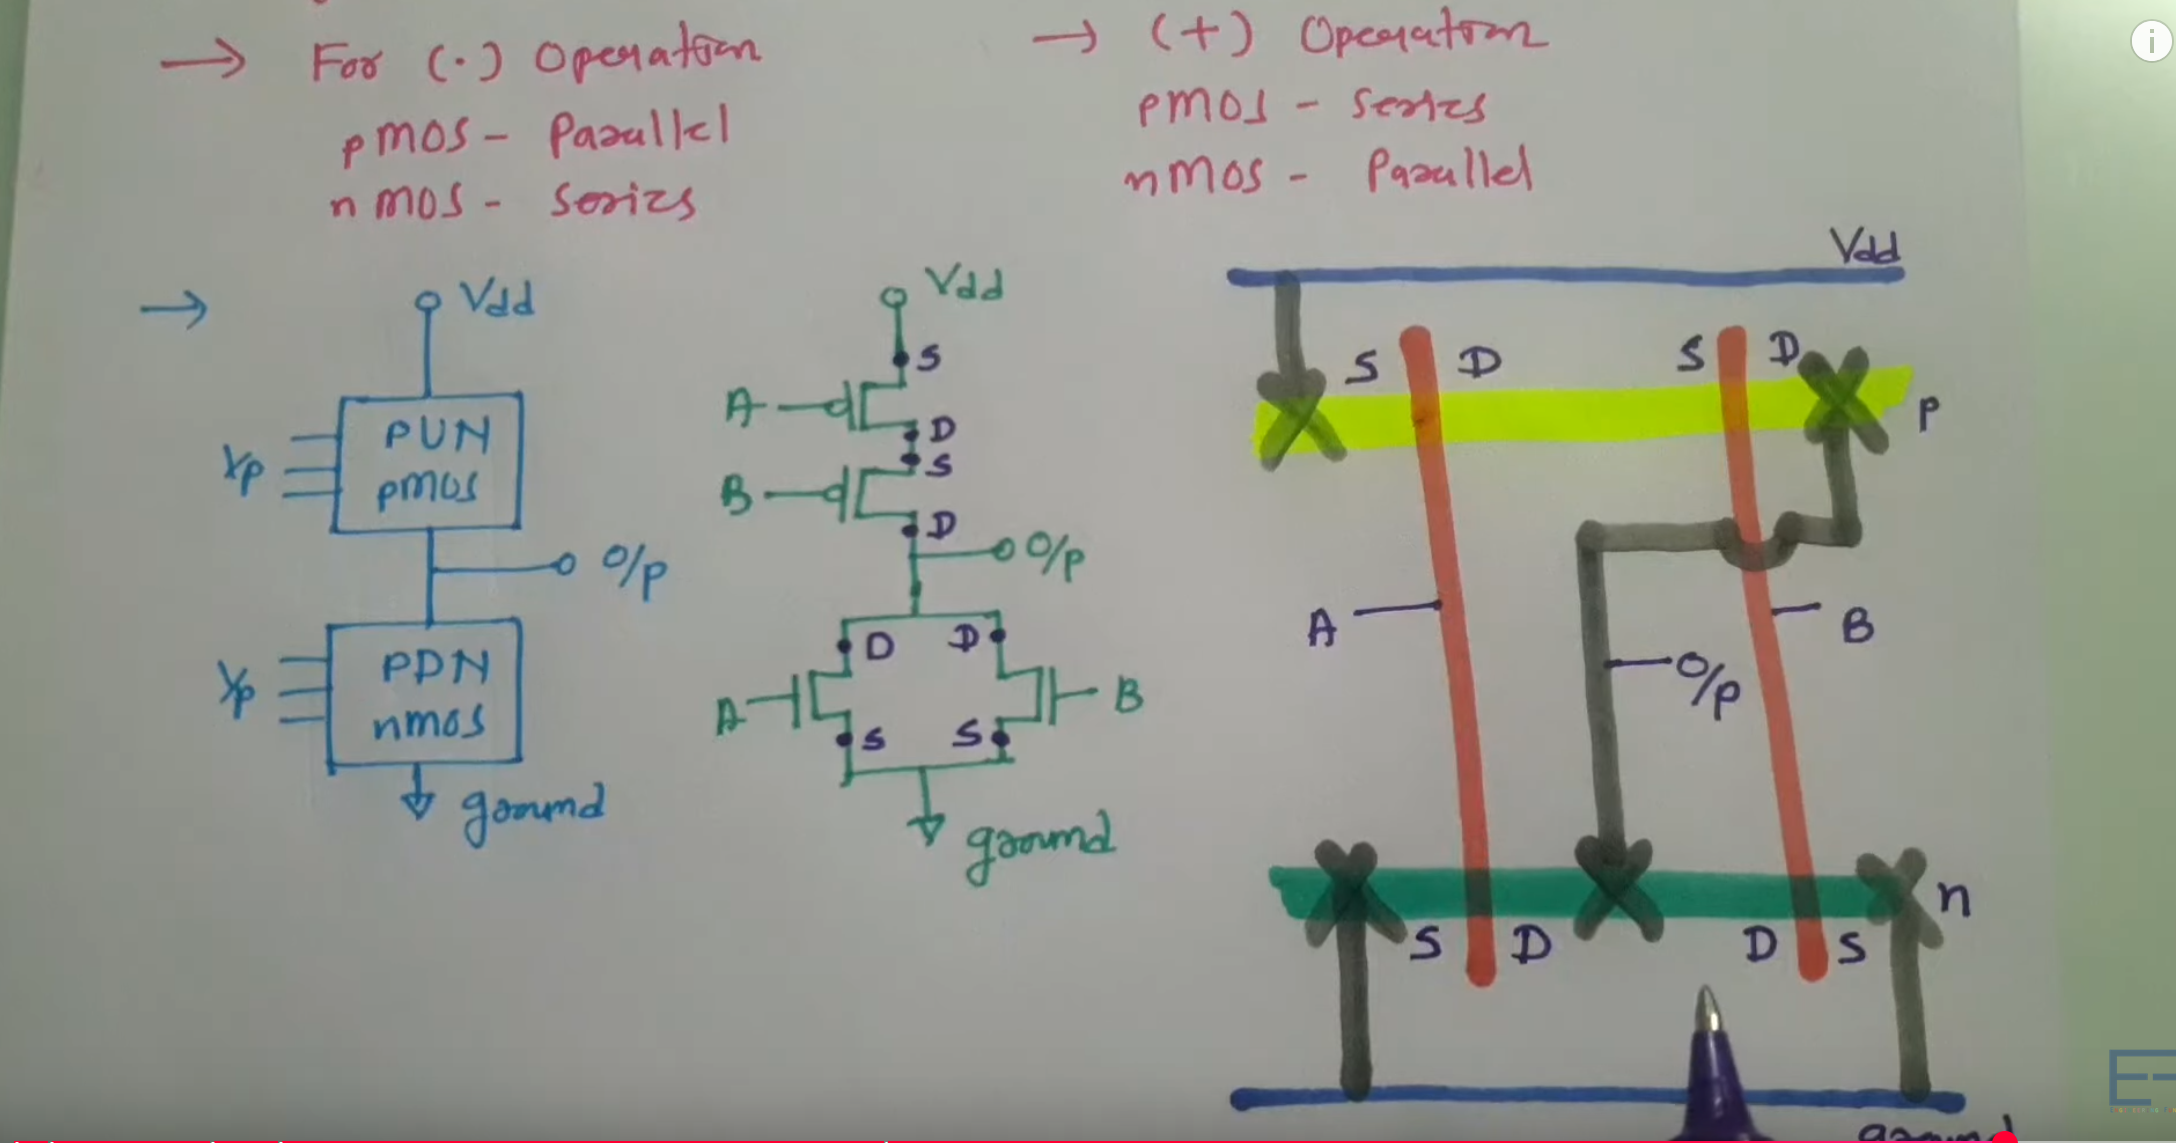 → For (·) Operation
pMOS - Parallel
nMOS - Series
→ (+) Operation
pMOS - Series
nMOS - Parallel
→
Vdd
PUN
pmos
I/p
O/p
PDN
nmos
I/p
ground
Vdd
S
A
D
S
B
D
O/p
D D
A B
S S
ground
Vdd
S D S D
P
A B
O/p
n
S D D S
ground
i